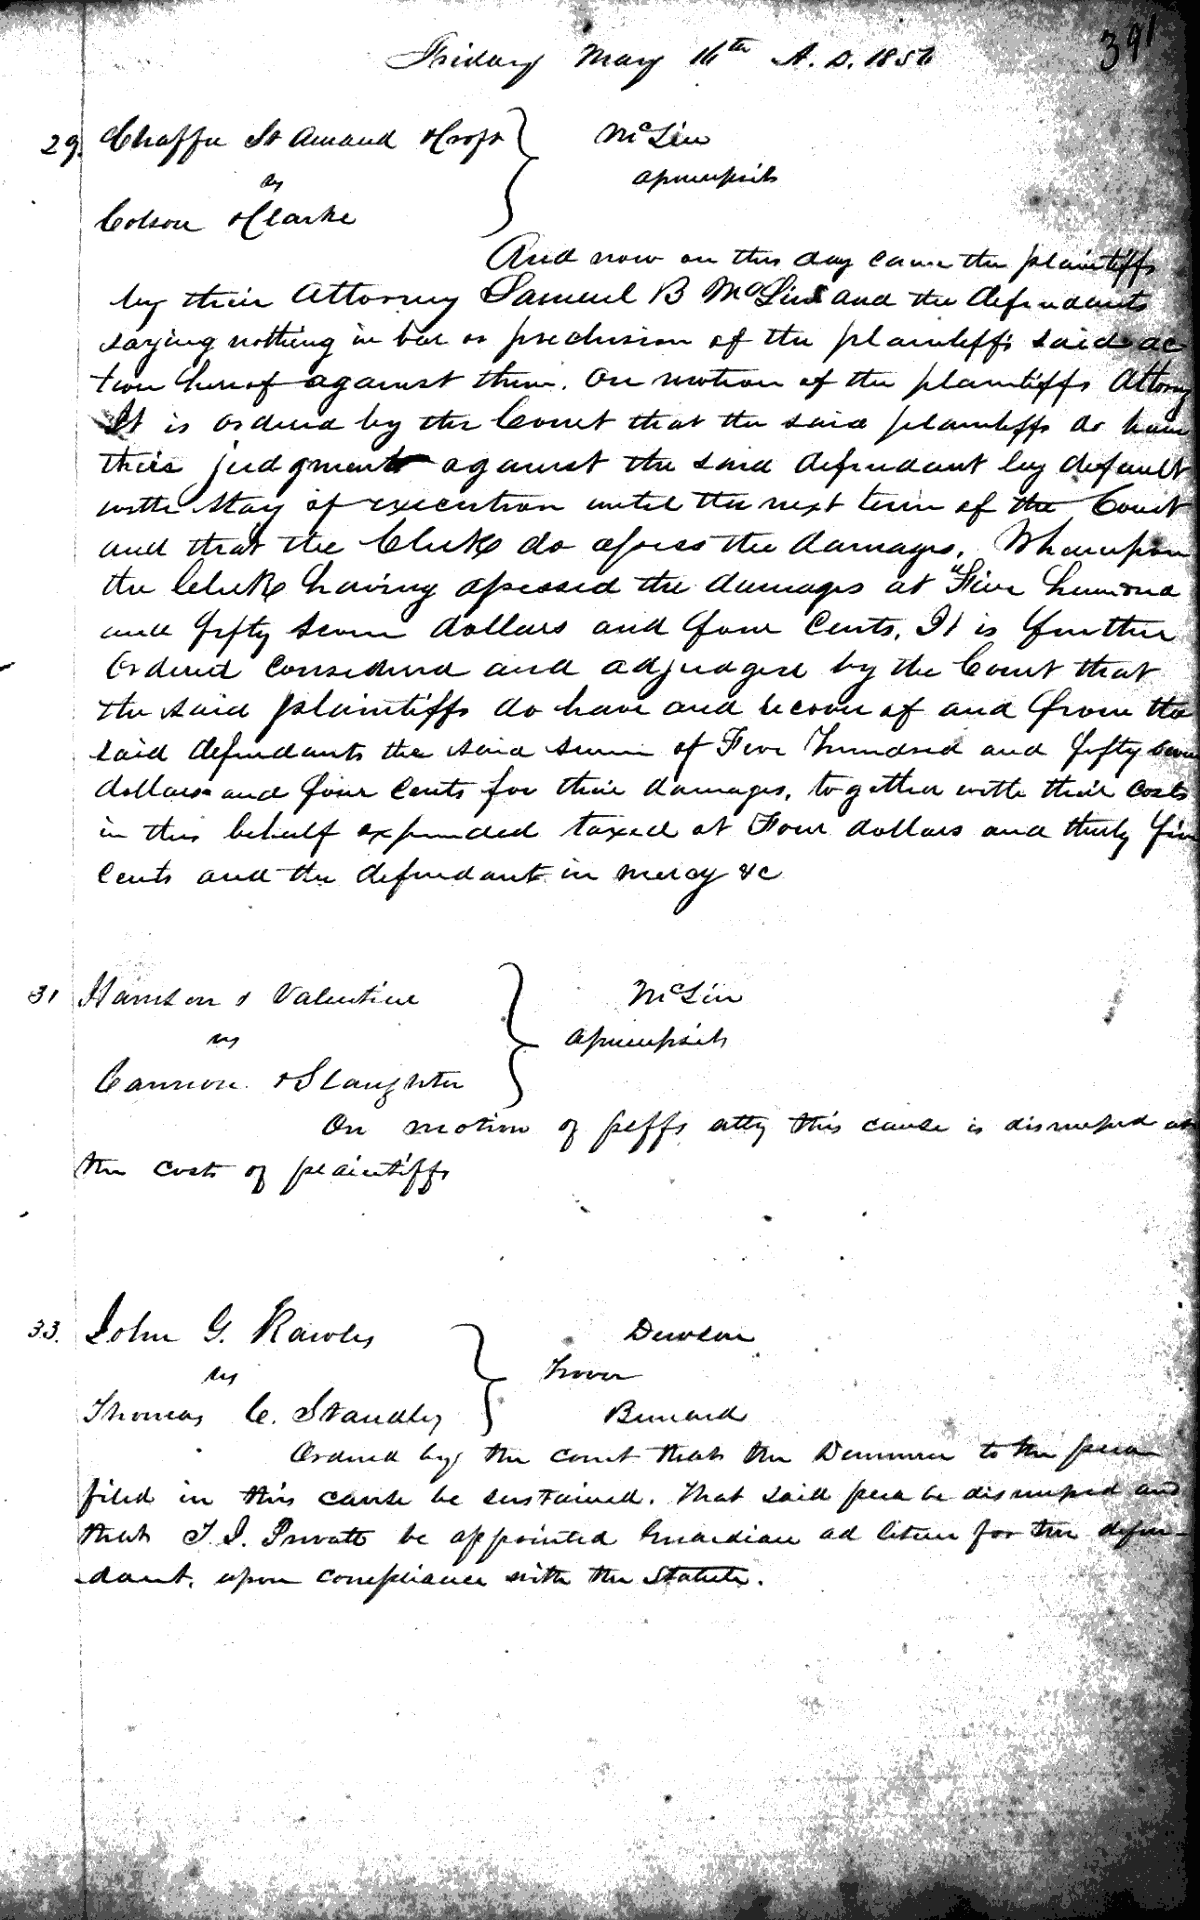 391
Friday May 16th A. D. 1856
29. Chaffee St Amand & Croft
McLin
vs
assumpsit
Colson & Clarke
And now on this day came the plaintiffs
by their Attorney Samuel B McLin and the defendants
saying nothing in bar or preclusion of the plaintiffs said ac
tion hereof against them. On motion of the plaintiffs Attorney
It is ordered by the Court that the said plaintiffs do have
their judgment against the said defendant by default
with stay of execution until the next term of the Court
and that the Clerk do assess the damages. Whereupon
the Clerk having assessed the damages at "Five hundred
and fifty seven dollars and four cents. It is further
Ordered considered and adjudged by the Court that
the said plaintiffs do have and recover of and from the
said defendants the said sum of Five hundred and fifty seven
dollars and four cents for their damages, together with their costs
in this behalf expended taxed at Four dollars and thirty five
cents and the defendant in mercy &c
31 Harrison & Valentine
McLin
vs
assumpsit
Cannon & Slaughter
On motion of plffs atty this cause is dismissed at
the costs of plaintiffs
33. John G. Rawls
Dawson
vs
Trover
Thomas C. Standley
Bernard
Ordered by the court that the Demurrer to the plea
filed in this cause be sustained. That said plea be dismissed and
that T. J. Privatt be appointed Guardian ad litem for the defen-
-dant, upon compliance with the Statute.